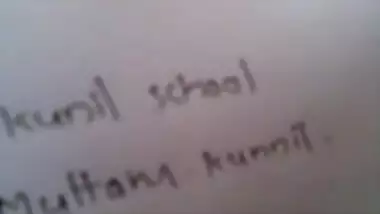 kunil school
Muttam kunnil.